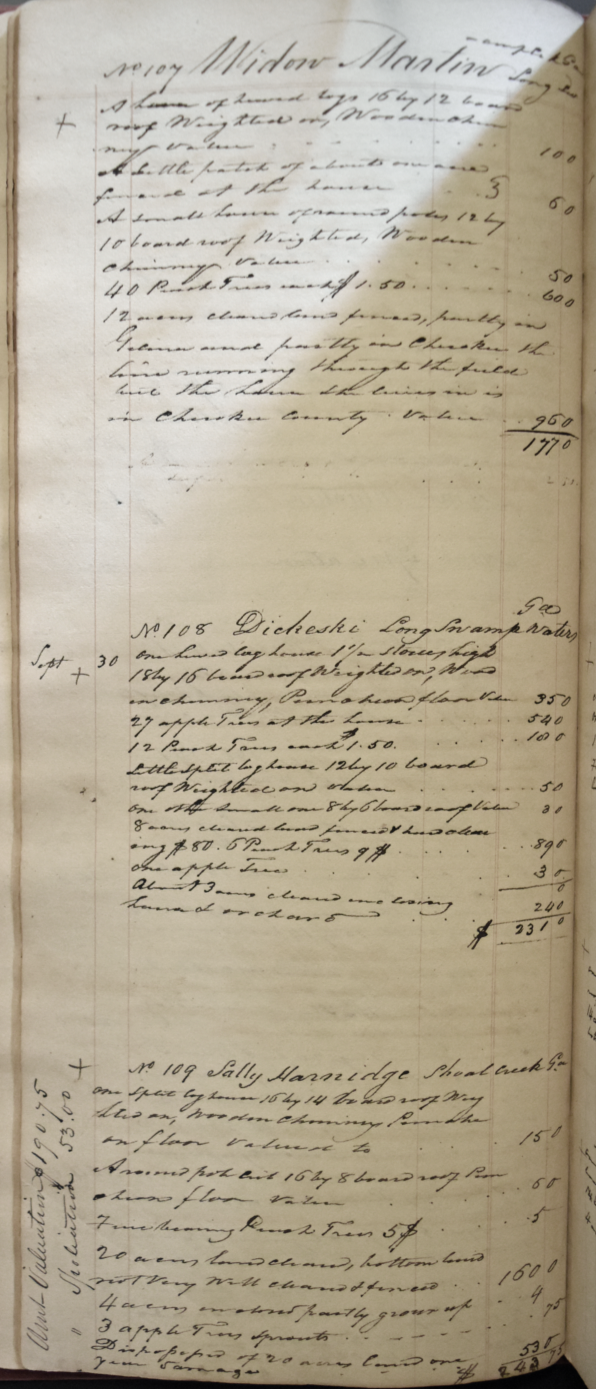 No 107 Widow Martin
Long
+ A house of hewed logs 16 by 12 board
roof Weighted on, Wooden chim
ney Value 100
A Little patch of about one acre
fenced at the house 60
A small house of round poles 12 by
10 board roof Weighted, Wooden
chimney Value 50
40 Peach Trees each $1.50 600
12 acres cleared land fenced, partly in
Gilmer and partly in Cherokee the
line running through the field
but the house she lives in is
in Cherokee County Value 960
1770
Ga
No 108 Dickeski Long Swamp Waters
Sept 30 + one hewed log house 1 1/2 stories high
18 by 16 board roof Weighted on, Wood
en chimney, Puncheon floor Value 350
27 apple Trees at the house 540
12 Peach Trees each $1.50. 180
Little Split log house 12 by 10 board
roof Weighted on Value 50
one other small one 8 by 6 board roof Value 30
8 acres cleared land fenced
ing $80. 6 Peach Trees 9$ 890
one apple Tree 30
About 3 acres cleared inclosing
house & orchard 240
$ 2310
+ No 109 Sally Harnidge Shoal Creek Ga
one Split log house 16 by 14 board roof Weig
hted on, Wooden Chimney Punche
on floor Valued to 150
A round pole 16 by 8 board roof Pun
cheon floor Value 60
bearing Peach Trees 5$ 5
20 acres land cleared, bottom land
not Very Well cleared & fenced 1600
4 acres inclosed partly grown up 4
3 apple Trees Sprouts 75
Dispossessed of 20 acres land one
year damage
Valuation $190.75
Spoliation 53.00